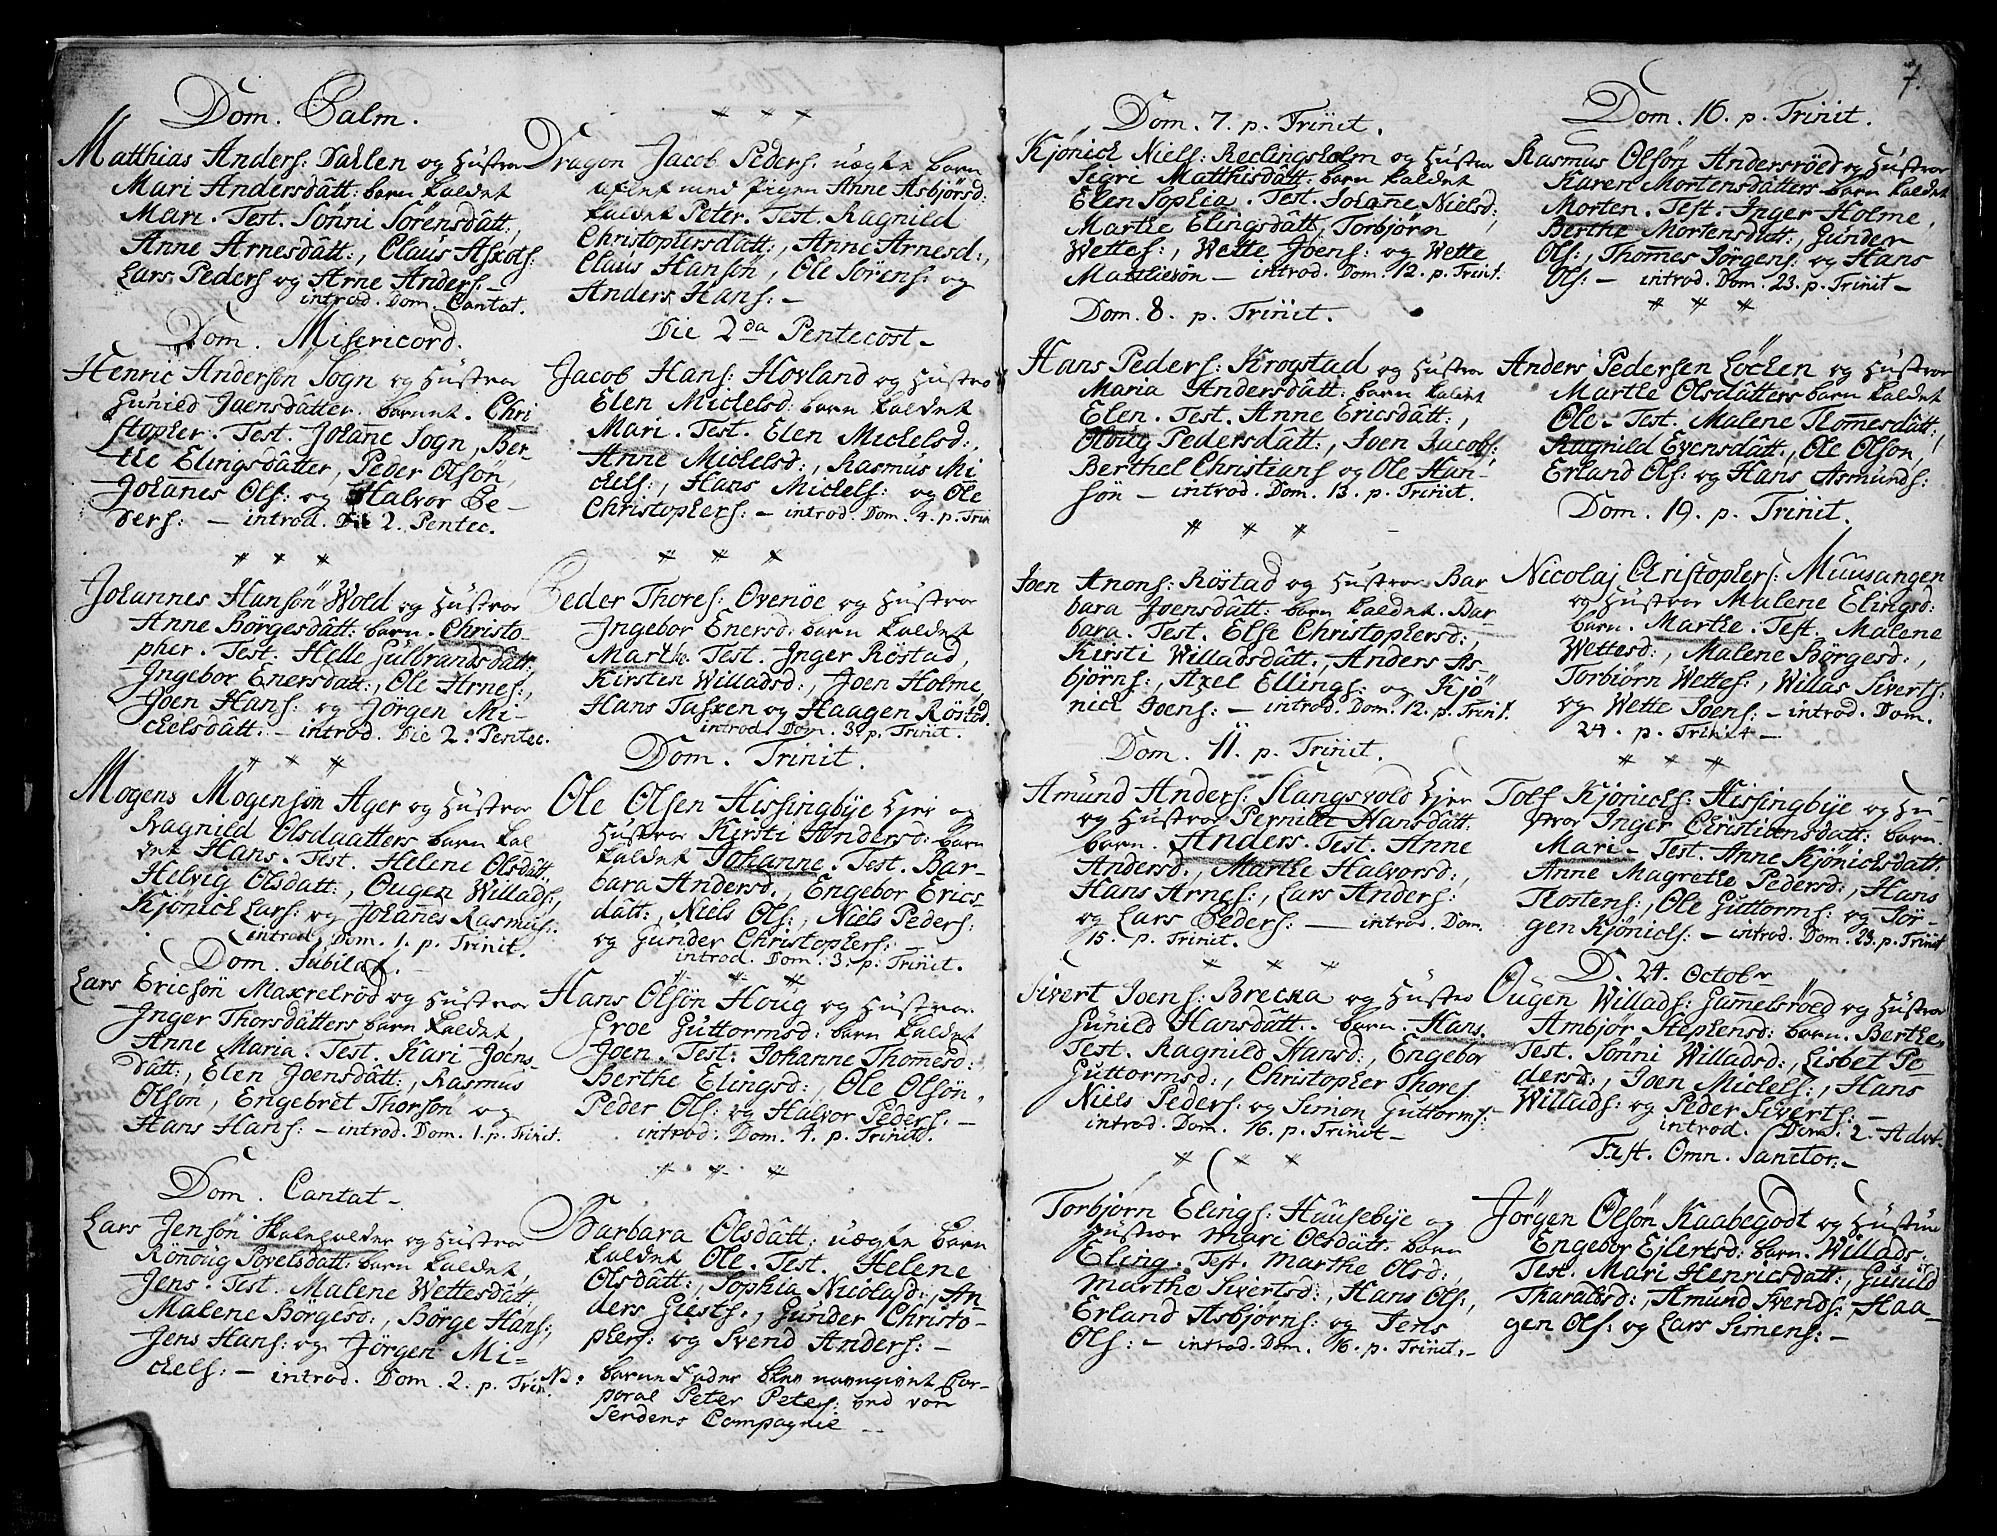 Dom. Palm.
Matthias Anders: Dahlen og Hustroe
Mari Andersdått: barn kaldet
Mari. Test. Sønni Sörensdått:,
Anne Arnesdått:, Claus Askots:
Lars Peders og Arne Anders: –
introd. Dom. Cantat.
Dom. Misericord.
Henric Andersön Sogn og Hustroe
Gunild Joensdåtter barnet. Chri
stopher. Test. Johanne Sogn, Ber-
the Elingsdåtter, Peder Olsön,
Johannes Ols: og Halvor Pe-
ders: – introd. Die 2. Pentec.
* * *
Johannes Hansön Wold og Hustroe
Anne Börgesdått: barn. Christo-
pher. Test. Helle Gulbrandsdått,
Ingebor Enersdått:, Ole Arnes:,
Joen Hans: og Jörgen Mi-
chelsdått: – introd. Die 2. Pentec.
* * *
Mogens Mogensön Ager og Hustroe
Ragnild Olsdaatters barn kal
det Hans. Test. Helene Olsdått,
Helvig Olsdatt:, Ougen Willads:,
Kjönick Lars: og Johannes Rasmus:
introd. Dom. 1. p. Trinit.
Dom. Jubilat. –
Lars Ericsön Maxrelröd og Hustroe
Inger Thorsdåtters barn kaldet
Anne Maria. Test. Kari Joens
dått:, Elen Joensdått:, Rasmus
Olsön, Engebret Thorsön og
Hans Hans: – introd. Dom. 1. p. Trinit.
Dom. Cantat –
Lars Jensön Skaleholder og Hustroe
Rönoug Povelsdått: barn kaldet
Jens. Test. Malene Wettesdått,
Malene Börgesd:, Börge Hans:,
Jens Hans: og Jörgen Mi-
chels: – introd. Dom. 2. p. Trin.
* * *
Dragon Jacob Peders: uægte barn
aflet med Pigen Anne Asbjörsd:
kaldet Peter. Test. Ragnild
Christophersdått:, Anne Arnesd:,
Claus Hansön, Ole Sörens: og
Anders Hans: –
Die 2da Pentecost –
Jacob Hans: Hovland og Hustroe
Elen Michelsd: barn kaldet
Mari. Test. Elen Michelsd:,
Anne Michelsd:, Rasmus Mi
chels:, Hans Michels: og Ole
Christophers: – introd. Dom. 4. p. Trin
* * *
Peder Thores: Ovenöe og Hustroe
Ingebor Enersd: barn kaldet
Marth. Test. Inger Röstad,
Kirsten Willadsd:, Joen Holme,
Hans Tasken og Haagen Röstad.
introd. Dom. 3. p. Trinit.
Dom. Trinit.
Ole Olsen Hissingbye Ejer og
Hustroe Kirsti Andersd: barn
kaldet Johanne. Test. Bar-
bara Andersd., Engebor Erics-
dått:, Niels Ols:, Niels Peders:
og Gunder Christophers: –
introd. Dom. 3. p. Trinit.
* *
Hans Olsön Houg og Hustroe
Groe Guttormsd: barn kaldet
Joen. Test: Johanne Thomesd:
Berthe Elingsd:, Ole Olsön,
Peder Ols: og Halvor Peders: –
introd. Dom. 4. p. Trinit.
* * *
Barbara Olsdått: uægte barn
kaldet Ole. Test. Helene
Olsdått:, Sophia Nicolasd:, An-
ders Giests:, Gunder Christo-
phers: og Svend Anders: –
Nb: barne Fader blev navngivet Cor-
poral Peter Peters: ved von
Serdens Compagnie –
7.
Dom. 7. p. Triniit.
Kjönick Niels: Reclingsholm og Hustroe
Sigri Matthisdått: barn kaldet
Elen Sophia. Test. Johanne Nielsd:,
Marthe Elingsdått, Torbjörn
Wettes:, Wette Joens: og Wette
Matthieson – introd. Dom. 12. p. Trinit.
Dom. 8. p. Triniit.
Hans Peders: Krogstad og Hustroe
Maria Andersdått: barn kaldet
Elen. Test. Anne Ericsdått:,
Oloug Pedersdått:, Joen Jacobs:
Berthel Christians og Ole Han-
sön – introd. Dom. 13. p. Trinit.
* * *
Joen Anons: Röstad og Hustroe Bar-
bara Joensdått: barn kaldet. Bar
bara. Test. Else Christophersd:,
Kirsti Willadsdått:, Anders As-
björns:, Axel Ellings: og Kjö
nick Joens: – introd. Dom. 12. p. Trinit.
Dom. 11. p. Triniit.
Amund Anders: Slangsvold Ejer
og Hustroe Pernille Hansdått:
barn. Anders. Test. Anne
Andersd:, Marthe Halvorsd:,
Hans Arnes:, Lars Anders:
og Lars Peders: – introd. Dom.
15. p. Trinit.
* * *
Sivert Joens: Brecka og Hustro
Gunild Hansdått. barn. Hans.
Test. Ragnild Hansd:, Engebor
Guttormsd:, Christopher Thores
Niels Peders: og Simon Guttorms:
introd. Dom. 16. p. Triniit –
* * *
Torbjörn Elings: Huusebye og
Hustroe Mari Olsdått: barn
Eling. Test. Marthe Olsd:,
Marthe Sivertsd:, Hans Ols:,
Erland Asbjörns: og Jens
Ols: – introd. Dom. 16. p. Triniit. –
Dom. 16. p. Trinit.
Rasmus Olsön Andersröed og Hustroe
Karen Mortensdåtters barn kaldet
Morten. Test. Inger Holme,
Berthe Mortensdått:, Gunder
Ols:, Thomes Jörgens: og Hans
Ols: – introd. Dom. 23. p. Trinit –
* * *
Anders Pedersen Löcken og Hustroe
Marthe Olsdåtters barn kaldet
Ole. Test. Malene Thomesdått:,
Ragnild Evensdått:, Ole Olson,
Erland Ols: og Hans Asmunds:
Dom. 19. p. Triniit.
Nicolaj Christophers: Muusangen
og Hustroe Malene Elingsd:
barn. Marthe. Test. Malene
Wettesd:, Malene Börgesd:,
Torbiörn Wettes:, Willas Siverts:
og Wette Joens: – introd. Dom.
24. p. Trinit –
* * *
Tolf Kjönichs: Hissingbye og Hu-
stroe Inger Christiansdått: barn.
Mari – Test. Anne Kjönichsdått:
Anne Magrethe Pedersd:, Hans
Thostens:, Ole Guttorms: og Jör-
gen Kjönichs: – introd. Dom. 23. p. Triniit
D. 24. Octobr
Ougen Willads: Gamelsröed og Hustroe
Ambjör Stephensd: barn. Berthe,
Test. Sönni Willadsd:, Lisbet Pe
dersd:, Joen Michels:, Hans
Willads: og Peder Siverts: –
introd. Dom. 2. Advt.
Fest. Omn. Sanctor: –
Jörgen Olsön Kaabegodt og Hustrue
Engebor Ejlertsd: barn. Willads.
Test. Mari Henricsdatt:, Gunild
Tharaldsd:, Amund Svends:, Haa-
gen Ols: og Lars Simens: –